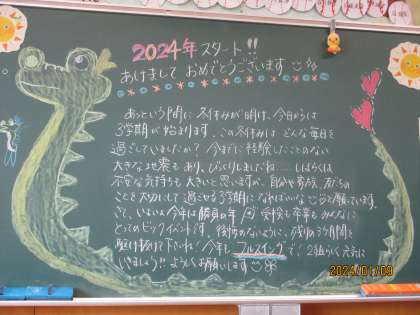 2024年スタート!!
あけまして おめでとうございます
あっという間に 冬休みが明け、今日からは
3学期が始まります。この冬休みは どんな毎日を
過ごしていましたか？今までに経験したことのない
大きな地震もあり、びっくりしましたね…しばらくは
不安な気持ちも大きいと思いますが、自分や家族、友だちの
ことを大切にして過ごせる3学期になればいいなと願っています。
さて、いよいよ今年は勝負の年 受検も卒業もみんなに
とってのビッグイベントです。後悔のないように、残りの3ヶ月間を
駆け抜けて下さいね！今年も フルスイングで！2組らしく元気に
いきましょう!! よろしくお願いします
2024/01/09